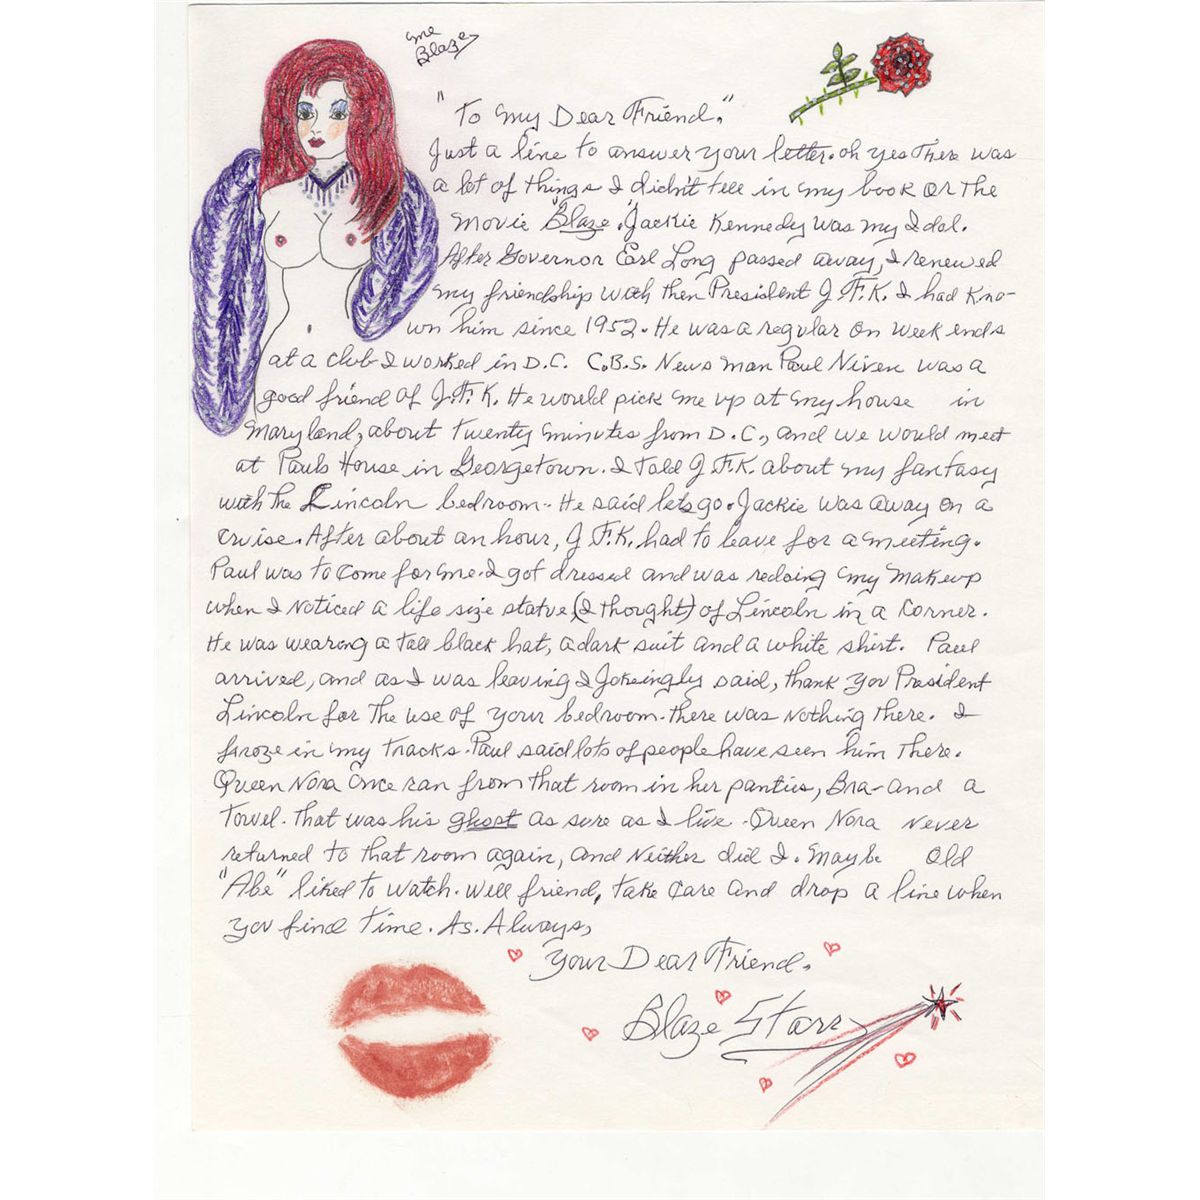 me
Blaze
"To my Dear Friend."
Just a line to answer your letter. oh yes There was
a lot of things I didn't tell in my book or the
movie "Blaze". Jackie Kennedy was my Idol.
After Governor Earl Long passed away, I renewed
my friendship with then President J.F.K. I had kno-
wn him since 1952. He was a regular on week ends
at a club I worked in D.C. C.B.S. News man Paul Niven was a
good friend of J.F.K. He would pick me up at my house in
Maryland, about twenty minutes from D.C., and we would meet
at Pauls House in Georgetown. I told J.F.K. about my fantasy
with the Lincoln bedroom- He said lets go. Jackie was away on a
cruise. After about an hour, J.F.K. had to leave for a meeting.
Paul was to come for me. I got dressed and was redoing my makeup
when I noticed a life size statue (I thought) of Lincoln in a corner.
He was wearing a tall black hat, a dark suit and a white shirt. Paul
arrived, and as I was leaving I Jokeingly said, thank you President
Lincoln for the use of your bedroom. there was nothing there. I
froze in my tracks. Paul said lots of people have seen him there.
Queen Nora once ran from that room in her panties, Bra- and a
Towel. That was his ghost as sure as I live. Queen Nora never
returned to that room again, and neither did I. Maybe old
"Abe" liked to watch. Well friend, take care and drop a line when
you find time. As. Always,
Your Dear Friend.
Blaze Starr